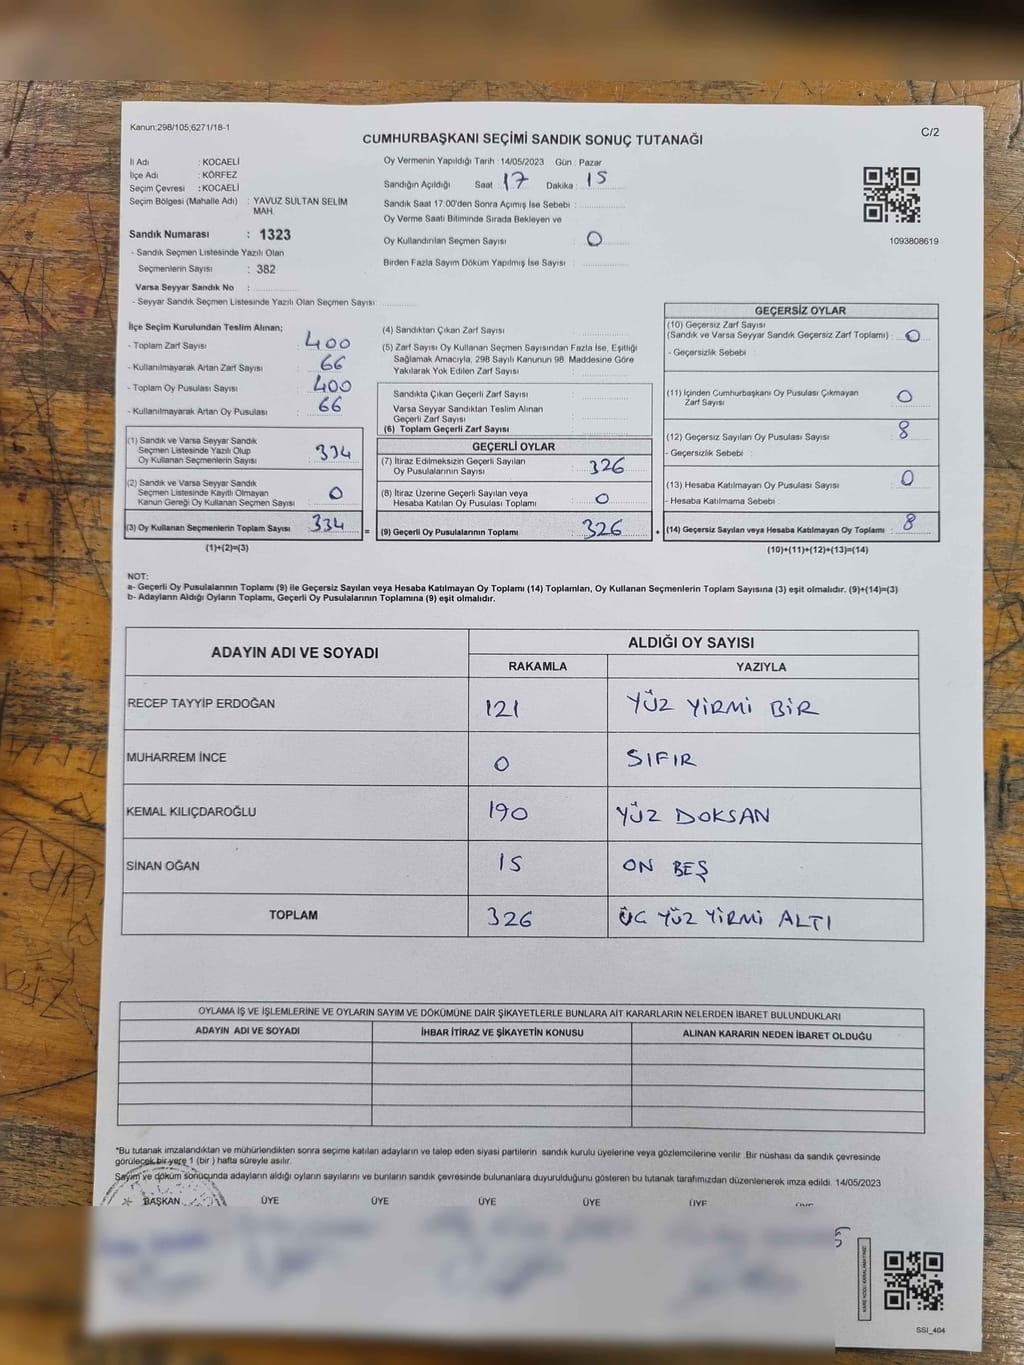 Kanun;298/105;6271/18-1
C/2
CUMHURBAŞKANI SEÇİMİ SANDIK SONUÇ TUTANAĞI
İl Adı : KOCAELİ
Oy Vermenin Yapıldığı Tarih : 14/05/2023 Gün : Pazar
İlçe Adı : KÖRFEZ
Seçim Çevresi : KOCAELİ
Sandığın Açıldığı Saat : 17 Dakika : 15
Seçim Bölgesi (Mahalle Adı) : YAVUZ SULTAN SELİM
MAH.
Sandık Saat 17:00'den Sonra Açımış İse Sebebi :
Oy Verme Saati Bitiminde Sırada Bekleyen ve
Oy Kullandırılan Seçmen Sayısı : 0
Birden Fazla Sayım Döküm Yapılmış İse Sayısı :
1093808619
Sandık Numarası : 1323
- Sandık Seçmen Listesinde Yazılı Olan
Seçmenlerin Sayısı : 382
Varsa Seyyar Sandık No :
- Seyyar Sandık Seçmen Listesinde Yazılı Olan Seçmen Sayısı:
İlçe Seçim Kurulundan Teslim Alınan;
- Toplam Zarf Sayısı : 400
- Kullanılmayarak Artan Zarf Sayısı : 66
- Toplam Oy Pusulası Sayısı : 400
- Kullanılmayarak Artan Oy Pusulası : 66
(1) Sandık ve Varsa Seyyar Sandık
Seçmen Listesinde Yazılı Olup
Oy Kullanan Seçmenlerin Sayısı : 334
(2) Sandık ve Varsa Seyyar Sandık
Seçmen Listesinde Kayıtlı Olmayan
Kanun Gereği Oy Kullanan Seçmen Sayısı : 0
(3) Oy Kullanan Seçmenlerin Toplam Sayısı : 334 =
(1)+(2)=(3)
(4) Sandıktan Çıkan Zarf Sayısı :
(5) Zarf Sayısı Oy Kullanan Seçmen Sayısından Fazla İse, Eşitliği
Sağlamak Amacıyla, 298 Sayılı Kanunun 98. Maddesine Göre
Yakılarak Yok Edilen Zarf Sayısı :
Sandıkta Çıkan Geçerli Zarf Sayısı :
Varsa Seyyar Sandıktan Teslim Alınan
Geçerli Zarf Sayısı :
(6) Toplam Geçerli Zarf Sayısı :
GEÇERLİ OYLAR
(7) İtiraz Edilmeksizin Geçerli Sayılan
Oy Pusulalarının Sayısı : 326
(8) İtiraz Üzerine Geçerli Sayılan veya
Hesaba Katılan Oy Pusulası Toplamı : 0
(9) Geçerli Oy Pusulalarının Toplamı : 326 +
GEÇERSİZ OYLAR
(10) Geçersiz Zarf Sayısı
(Sandık ve Varsa Seyyar Sandık Geçersiz Zarf Toplamı) : 0
- Geçersizlik Sebebi :
(11) İçinden Cumhurbaşkanı Oy Pusulası Çıkmayan
Zarf Sayısı : 0
(12) Geçersiz Sayılan Oy Pusulası Sayısı : 8
- Geçersizlik Sebebi :
(13) Hesaba Katılmayan Oy Pusulası Sayısı : 0
- Hesaba Katılmama Sebebi :
(14) Geçersiz Sayılan veya Hesaba Katılmayan Oy Toplamı : 8
(10)+(11)+(12)+(13)=(14)
NOT:
a- Geçerli Oy Pusulalarının Toplamı (9) ile Geçersiz Sayılan veya Hesaba Katılmayan Oy Toplamı (14) Toplamları, Oy Kullanan Seçmenlerin Toplam Sayısına (3) eşit olmalıdır. (9)+(14)=(3)
b- Adayların Aldığı Oyların Toplamı, Geçerli Oy Pusulalarının Toplamına (9) eşit olmalıdır.
ADAYIN ADI VE SOYADI
ALDIĞI OY SAYISI
RAKAMLA YAZIYLA
RECEP TAYYİP ERDOĞAN 121 YÜZ YİRMİ BİR
MUHARREM İNCE 0 SIFIR
KEMAL KILIÇDAROĞLU 190 YÜZ DOKSAN
SİNAN OĞAN 15 ON BEŞ
TOPLAM 326 ÜÇ YÜZ YİRMİ ALTI
OYLAMA İŞ VE İŞLEMLERİNE VE OYLARIN SAYIM VE DÖKÜMÜNE DAİR ŞİKAYETLERLE BUNLARA AİT KARARLARIN NELERDEN İBARET BULUNDUKLARI
ADAYIN ADI VE SOYADI İHBAR İTİRAZ VE ŞİKAYETİN KONUSU ALINAN KARARIN NEDEN İBARET OLDUĞU
*Bu tutanak imzalandıktan ve mühürlendikten sonra seçime katılan adayların ve talep eden siyasi partilerin sandık kurulu üyelerine veya gözlemcilerine verilir. Bir nüshası da sandık çevresinde
görülecek bir yere 1 (bir ) hafta süreyle asılır.
Sayım ve döküm sonucunda adayların aldığı oyların sayılarını ve bunların sandık çevresinde bulunanlara duyurulduğunu gösteren bu tutanak tarafımızdan düzenlenerek imza edildi. 14/05/2023
BAŞKAN ÜYE ÜYE ÜYE ÜYE ÜYE
SSI_404